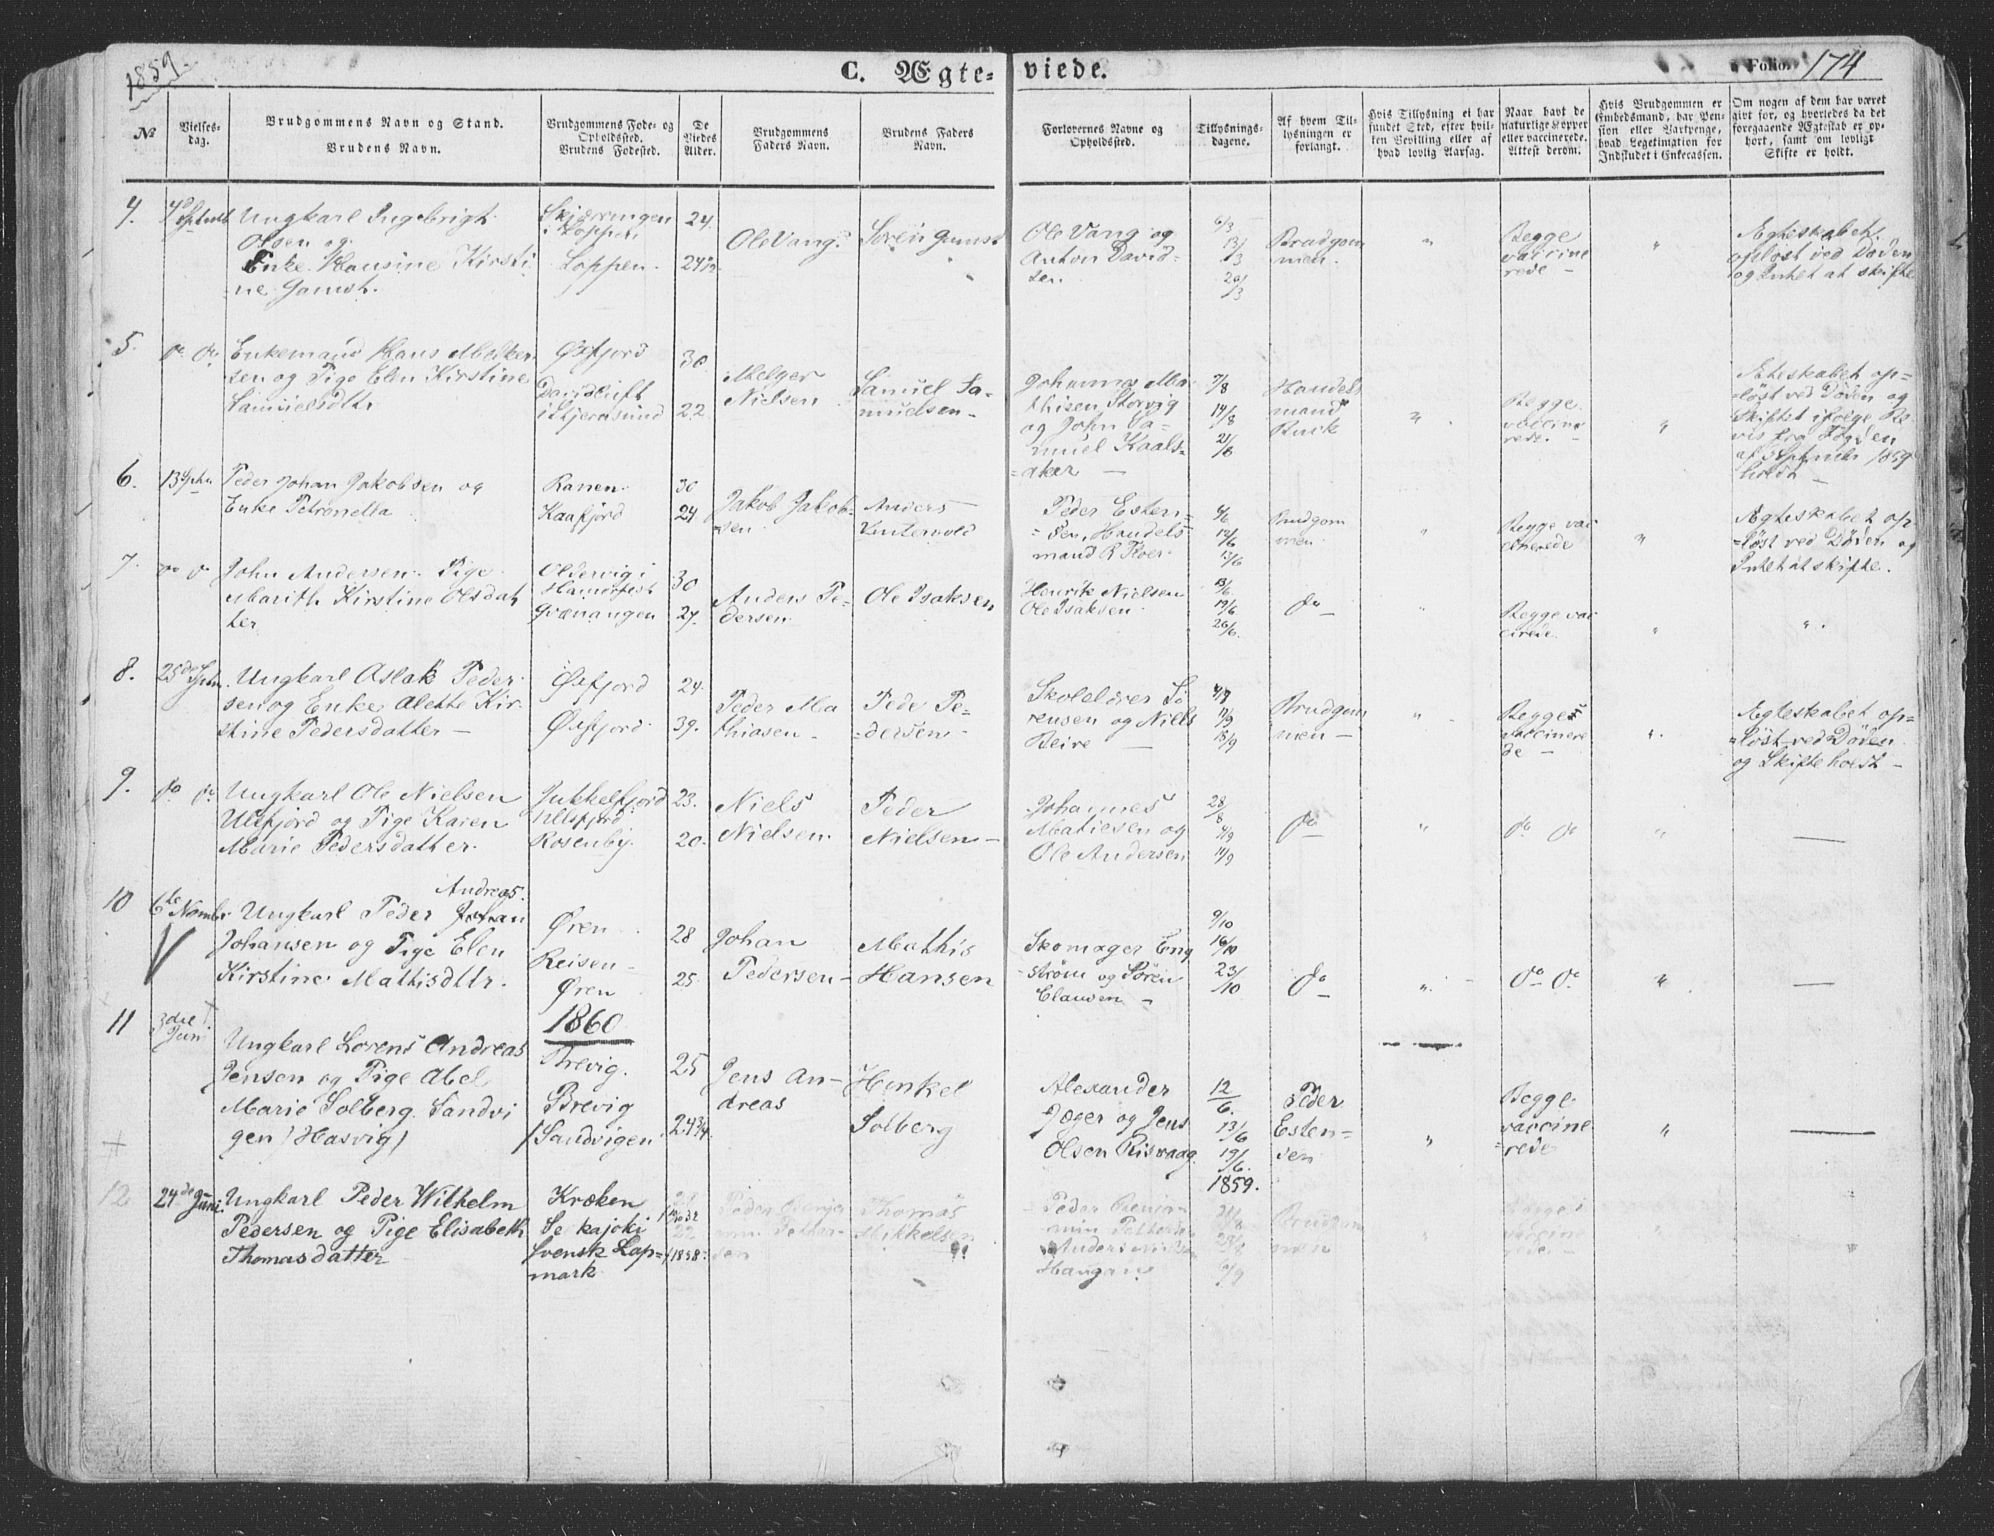 1859.
C. Ægte-
viede.
Folio. 174
№
Vielses-
dag.
Brudgommens Navn og Stand.
Brudens Navn.
Brudgommens Føde- og
Opholdssted.
Brudens Fødested.
De
Viedes
Alder.
Brudgommens
Faders Navn.
Brudens Faders
Navn.
Forlovernes Navne og
Opholdssted.
Tillysnings-
dagene.
Af hvem Til-
lysningen er
forlangt.
Hvis Tillysning ei har
fundet Sted, efter hvil-
ken Bevilling eller af
hvad lovlig Aarsag.
Naar havt de
naturlige Kopper
eller vaccinerede.
Attest derom.
Hvis Brudgommen er
Embedsmand, har Pen-
sion eller Vartpenge,
hvad Legetimation for
Indskudet i Enkecassen.
Om nogen af dem har været
gift før, og hvorledes da det
foregaaende Ægteskab er op-
hørt, samt om lovligt
Skifte er holdt.
4.
Ungkarl Ingebrigt
Olsen og
Enke Hansine Kirsti
ne Gamst.
Loppen
24
24 1/2
Ole Vang
Sören Gamst
Ole Vang og
Anton David-
sen.
6/3
13/3
20/3
Brudgom
men
"
Begge
vaccine
rede
"
Ægteskabet
opløst ved Døden
og Intet at skifte
5.
do do
Enkemand Hans
sen og Pige Elen Kirstine
Samuelsdttr
Øxfjord
30
22
Melger
Nielsen
Samuel Sa-
muelsen
Johannes Ma
thisen Storvig
og John Sa-
muel Kaals-
aker
7/8
14/8
21/8
Handels
mand
Buck
"
Begge
vaccine
rede.
"
Ægteskabet op-
løst ved Døden og
Skiftet ifølge Be
vis fra
af September 1859
holdt
6.
Peder Johan Jakobsen og
Enke Petronella
Ranen
Kaafjord
30
24
Jakob Jakob-
sen
Anders
Peder Esten-
sen, Handels
mand
12/6
Brudgom
men
"
Begge vac
cinerede
"
Ægteskabet op
løst ved Døden og
Intet at skifte.
7.
do do
John Andersen. Pige
Marith Kirstine Olsdat
ter
Oldervig i
Hamerfest
Qvænangen
30
27.
Anders Pe-
dersen
Ole Isaksen
Henrik Nielsen
Ole Isaksen
19/6
26/6
do
"
Begge vac
cirede.
"
"
8.
Ungkarl Aslak Peder
sen og Enke Alette Kir
stine Pedersdatter
Øxfjord
Øxfjord
24.
39.
Peder Ma
thiasen
Peder Pe-
dersen
Skolelærer Sö
rensen og Niels
Beire
4/9
11/9
18/9
Brudgom
men
"
Begge
vaccinere
de
"
Ægteskabet op-
løst ved Døden
og Skifte holdt
9.
do do
Ungkarl Ole Nielsen
Ulsfjord og Pige Karen
Marie Pedersdatter.
Jukkelfjord
Ulsfjord
Rosenby
23.
20.
Niels
Nielsen
Peder
Nielsen
Johannes
Matiesen og
Ole Andersen
28/8
4/9
11/9
do
"
do do
"
10
6te Novmbr
Andreas
Ungkarl Peder Johan
Johansen og Pige Elen
Kirstine Mathisdttr.
Øren
Reisen
Øren
28
25
Johan
Pedersen
Mathis
Hansen
Skomager Eng
strøm og Sören
Clausen
9/10
16/10
23/10
do
"
do do
"
1860
11
3die
Juni
Ungkarl Lorens Andreas
Jensen og Pige Abel
Marie Solberg Sandvi
gen / Hasvig /
Brevig.
Brevig
/ Sandvigen
25
24 3/4
Jens An-
dreas
Henkel
Solberg
Alexander
Jæger og Jens
Olsen Risvaag
12/6.
13/6
19/6.
Peder
Esten-
sen
"
Begge
vaccine
rede
"
12
24de Juni
Ungkarl Peder Wilhelm
Pedersen og Pige Elisabeth
Thomasdatter
Kræken
Se kajoki
svensk Lap-
mark
22
1838
Peder Benja
min Petter-
sen
Thomas
Mikkelsen
1859.
Peder Benja-
min
Anders
Brudgom
men
"
Begge
vaccine
rede
"
"